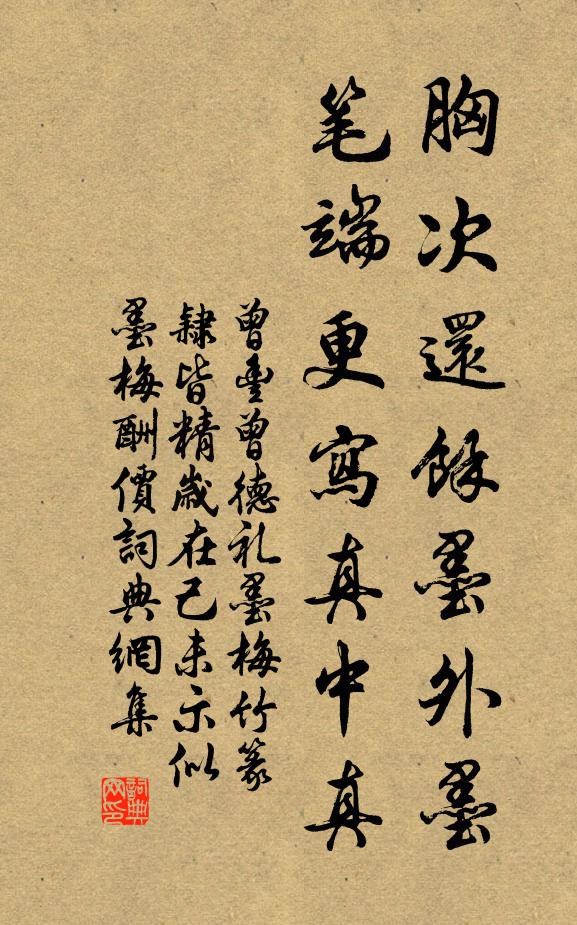 胸次還餘墨外墨
笔端更寫真中真
曾豊曾德礼墨梅竹篆
隸皆精歲在己未示似
墨梅酬價詞典網集
詞典网印